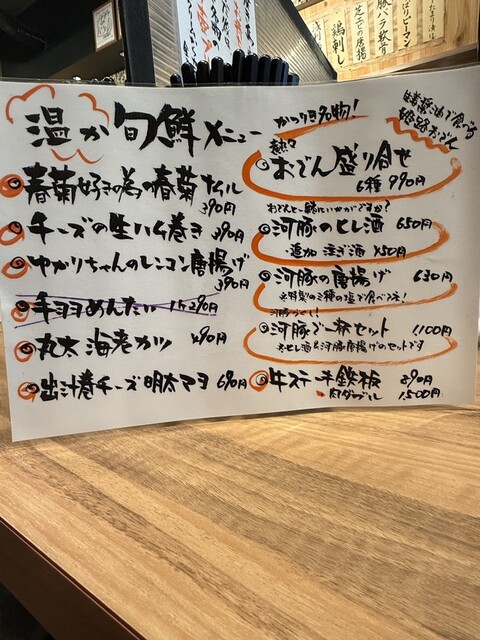 温か旬鮮メニュー
春菊好きの為の春菊ナムル
390円
チーズの生ハム巻き 390円
ゆかりちゃんのレンコン唐揚げ
390円
手羽めんたい 1ケ290円
丸太海老カツ 490円
出汁巻チーズ明太マヨ 690円
かつりき名物!
生姜醤油で食べる
姫路おでん
熱々
おでん盛り合せ
6種 990円
おでんと一緒にいかがですか?
河豚のヒレ酒 650円
追加 注ぎ酒 450円
河豚の唐揚げ 630円
河豚で一杯セット 1100円
ヒレ酒と河豚唐揚げのセットです
牛ステーキ鉄板 890円
肉ダブル 1500円
鶏刺し